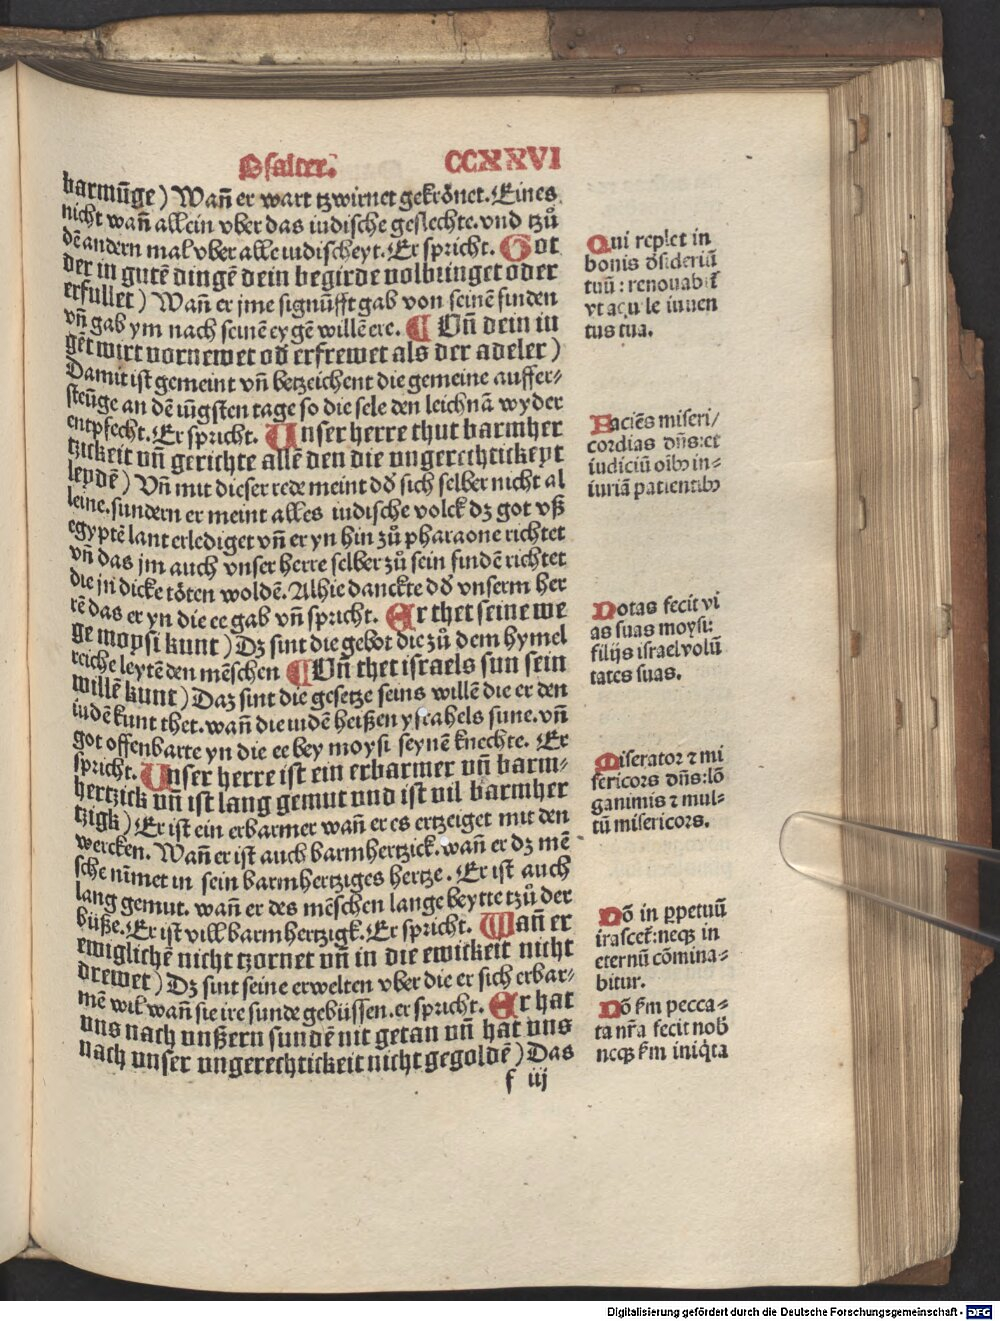 Psalter. CCXXVI
barmūge) Wañ er wart tzwirnet gekrönet. Eines
nicht wañ allein vber das iudische geslechte. vnd tzů
dē andern mal vber alle iudischeyt. Er spricht. Got
der in gutē dingē dein begirde volbringet oder
erfullet) Wañ er jme signūfft gab von seinē finden
vñ gab ym nach seinē eygē willē ere. ¶ Vñ dein iu
gēt wirt vornewet oď erfrewet als der adeler)
Damit ist gemeint vñ betzeichent die gemeine auffer⸗
steūge an dē iūgsten tage so die sele den leichnā wyder
entpfecht. Er spricht. Unser herre thut barmher
tzickeit vñ gerichte allē den die vngerechtickeyt
leydē) Vñ mit dieser rede meint dď sich selber nicht al
leine. sundern er meint alles iudische volck dz got vß
egyptē lant erlediget vñ er yn hin zů pharaone richtet
vñ das jm auch vnser herre selber zů sein findē richtet
die jn dicke töten woldē. Alhie danckte dď vnserm her
rē das er yn die ee gab vñ spricht. Er thet seine we
ge moysi kunt) Dz sint die gebot die zů dem hymel
reiche leytē den mēschen ¶ Vñ thet israels sun sein
willē kunt) Daz sint die gesetze seins willē die er den
iudē kunt thet. wañ die iudē heißen ysrahels sune. vñ
got offenbarte yn die ee bey moysi seynē knechte. Er
spricht. Unser herre ist ein erbarmer vñ barm⸗
hertzick vñ ist lang gemut vnd ist vil barmher
tzigk) Er ist ein erbarmer wañ er es ertzeiget mit den
wercken. Wañ er ist auch barmhertzick. wañ er dz mē
sche nīmet in sein barmhertziges hertze. Er ist auch
lang gemut. wañ er des mēschen lange beytte tzů der
büße. Er ist vill barmhertzigk. Er spricht. Wañ er
ewiglichē nicht tzornet vñ in die ewickeit nicht
drewet) Dz sint seine erwelten vber die er sich erbar⸗
mē wil wañ sie ire sunde gebüssen. er spricht. Er hat
vns nach vnßern sundē nit getan vñ hat vns
nach vnser vngerechtickeit nicht gegoldē) Das
f iij
Qui replet in
bonis ďsideriū
tuū: renouabit̄
vt aqule iuuen
tus tua.
Faciēs miseri/
cordias dñs: et
iudiciū oībꝰ in⸗
iuriā patientibꝰ
Notas fecit vi
as suas moysi:
filijs israel volū
tates suas.
Miserator ⁊ mi
sericors dñs: lō
ganimis ⁊ mul⸗
tū misericors.
Nō in ꝑpetuū
irascet᷑: neqꝫ in
eternū cōmina⸗
bitur.
Nō ẜm pecca⸗
ta nr̄a fecit nob̄
neqꝫ ẜm iniq̇ta
Digitalisierung gefördert durch die Deutsche Forschungsgemeinschaft - DFG